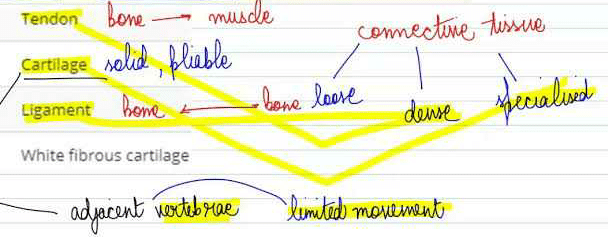 Tendon bone → muscle
connective tissue
Cartilage solid, pliable
Ligament bone ↔ bone loose dense specialised
White fibrous cartilage
adjacent vertebrae limited movement